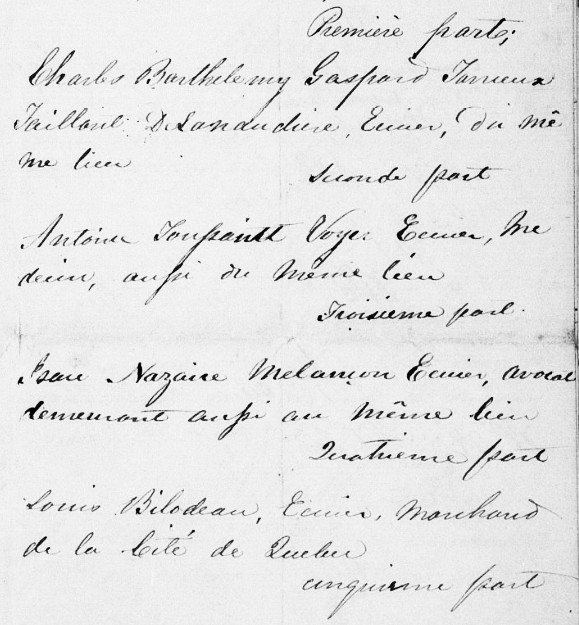 Première part;
Charles Barthelemy Gaspard Tarieux
Taillant DeLanaudière, Ecuier, du mê
me lieu
seconde part
Antoine Toussaint Voyer Ecuier, Me
decin, aussi du même lieu
Troisième part.
Isaie Nazaire Melançon Ecuier, avocat
demeurant aussi au même lieu
Quatrieme part
Louis Bilodeau, Ecuier, Marchand
de la Cité de Quebec
cinquieme part